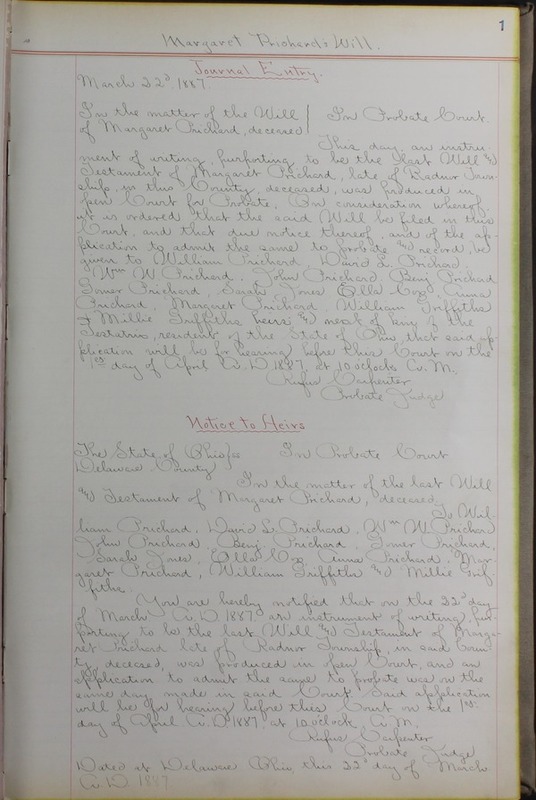 1
Margaret Prichard's Will.
Journal Entry.
March 22d, 1887
In the matter of the Will } In Probate Court.
of Margaret Prichard, deceased
This day an instru-
ment of writing, purporting to be the last Will &
Testament of Margaret Prichard, late of Radnor Town-
ship, in this County, deceased, was produced in
open Court for Probate. On consideration whereof
it is ordered that the said Will be filed in this
Court, and that due notice thereof, and of the ap-
plication to admit the same to probate & record, be
given to William Prichard, David L. Prichard,
Wm W. Prichard, John Prichard, Benj Prichard
Gomer Prichard, Sarah Jones, Ella Cox, Anna
Prichard, Margaret Prichard, William Griffiths
& Millie Griffiths heirs & next of kin of the
Testatrix, resident of the State of Ohio, that said ap-
plication will be for hearing before this Court on the
1st day of April A.D. 1887, at 10 o'clock A.M.
Rufus Carpenter
Probate Judge
Notice to Heirs
The State of Ohio } ss In Probate Court
Delaware County
In the matter of the last Will
& Testament of Margaret Prichard, deceased.
To Wil-
liam Prichard, David L. Prichard, Wm W. Prichard
John Prichard, Benj Prichard, Gomer Prichard,
Sarah Jones, Ella Cox, Anna Prichard, Mar-
garet Prichard, William Griffiths & Millie Grif-
fiths.
You are hereby notified that on the 22d day
of March A.D. 1887, an instrument of writing, pur-
porting to be the last Will & Testament of Marga-
ret Prichard late of Radnor Township, in said Coun-
ty, deceased, was produced in open Court, and an
application to admit the same to probate was on the
same day made in said Court. Said application
will be for hearing before this Court on the 1st
day of April A.D. 1887 at 10 o'clock, A.M.
Rufus Carpenter
Probate Judge
Dated at Delaware Ohio, this 22d day of March
A.D. 1887